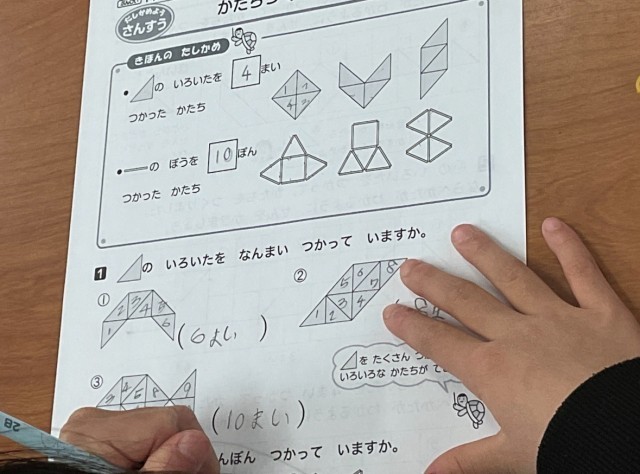 さんすう
かたち
きほんの たしかめ
の いろいたを 4 まい
つかった かたち
1 2
4 3
の ぼうを 10 ぽん
つかった かたち
1 の いろいたを なんまい つかって いますか。
①
1 2 3 4 5 6
(6よい)
②
5 6 7 8
1 2 3 4
を たくさん つ
いろいろな かたちが で
③
(10まい)
んぼん つかって いますか。
2B